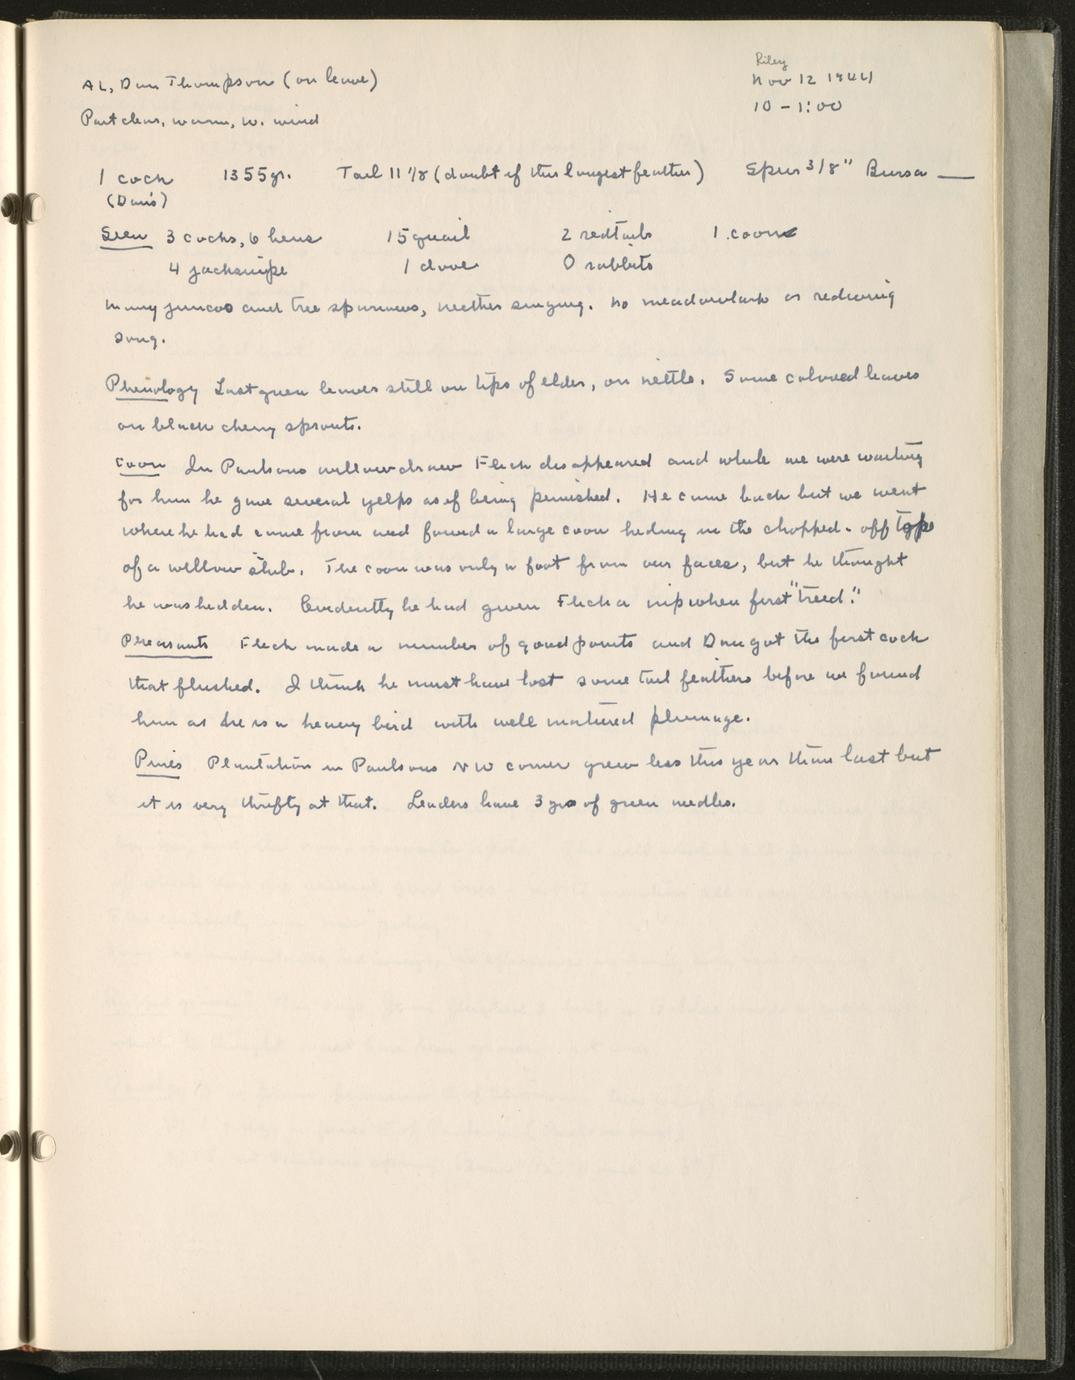 Riley
AL, Dan Thompson (on leave) Nov 12 1944
Part clear, warm, w. wind 10 - 1:00
1 cock 1355 gr. Tail 11 7/8 (doubt if this longest feather) Spur 3/8" Bursa —
(Dan's)
Seen 3 cocks, 6 hens 15 quail 2 redtails 1 coon
4 jacksnipe 1 dove 0 rabbits
Many juncos and tree sparrows, neither singing. No meadowlark or redwing
song.
Phenology Last green leaves still on tips of elder, on nettle. Some colored leaves
on black cherry sprouts.
Coon In Paulsons willow draw Flick disappeared and while we were waiting
for him he gave several yelps as if being punished. He came back but we went
where he had come from and found a large coon hiding in the chopped-off top
of a willow stub. The coon was only a foot from our faces, but he thought
he was hidden. Evidently he had given Flick a nip when first "treed."
Pheasants Flick made a number of good points and Dan got the first cock
that flushed. I think he must have lost some tail feathers before we found
him as he is a heavy bird with well matured plumage.
Pines Plantation in Paulsons NW corner grew less this year than last but
it is very thrifty at that. Leaders have 3 grs of green needles.